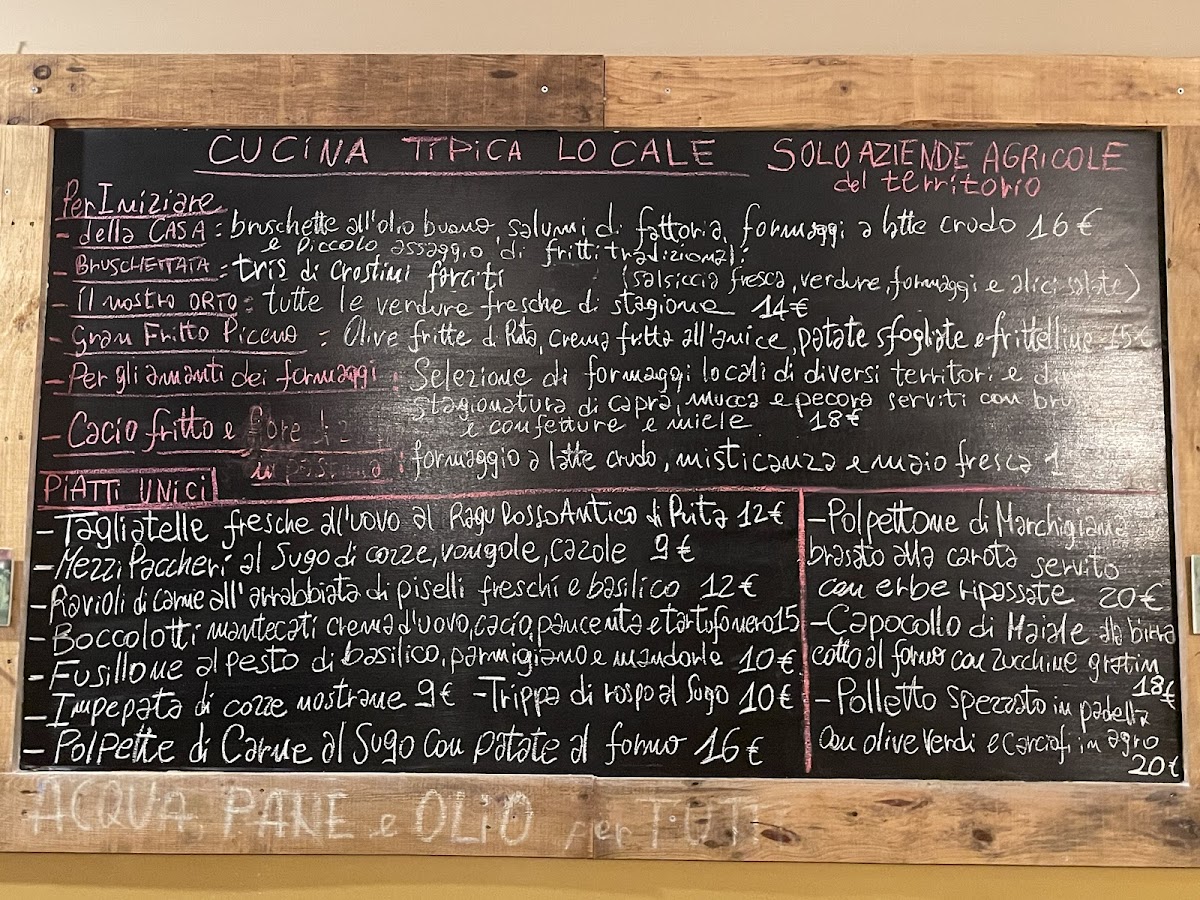 CUCINA TIPICA LOCALE
SOLO AZIENDE AGRICOLE
del territorio
Per Iniziare
- della CASA = bruschette all'olio buono, salumi di fattoria, formaggi a latte crudo 16€
e piccolo assaggio di fritti tradizionali
- BRUSCHETTATA = tris di crostini farciti (salsiccia fresca, verdure, formaggi e alici salate)
- il nostro ORTO = tutte le verdure fresche di stagione 14€
- Gran Fritto Piceno = Olive fritte di Rita, crema fritta all'anice, patate sfogliate e frittelline 15€
- Per gli amanti dei formaggi : Selezione di formaggi locali di diversi territori e
stagionatura di capra, mucca e pecora serviti con
e confetture e miele 18€
- Cacio fritto e fiore di
: formaggio a latte crudo, misticanza e maio fresca
PIATTI UNICI
- Tagliatelle fresche all'uovo al Ragù Rosso Antico di Rita 12€
- Mezzi Paccheri al Sugo di cozze, vongole, cazole 9€
- Ravioli di carne all'arrabbiata di piselli freschi e basilico 12€
- Boccolotti mantecati crema d'uovo, cacio, pancenta e tartufo nero 15
- Fusillone al pesto di basilico, parmigiano e mandorle 10€
- Impepata di cozze nostrane 9€ - Trippa di rospo al Sugo 10€
- Polpette di Carne al Sugo con patate al forno 16€
- Polpettone di Marchigiana
brasato alla carota servito
con erbe ripassate 20€
- Capocollo di Maiale alla birra
cotto al forno con zucchine gratin
18€
- Polletto spezzato in padella
con olive verdi e carciofi in agro
20€
ACQUA, PANE e OLIO per TUTTI